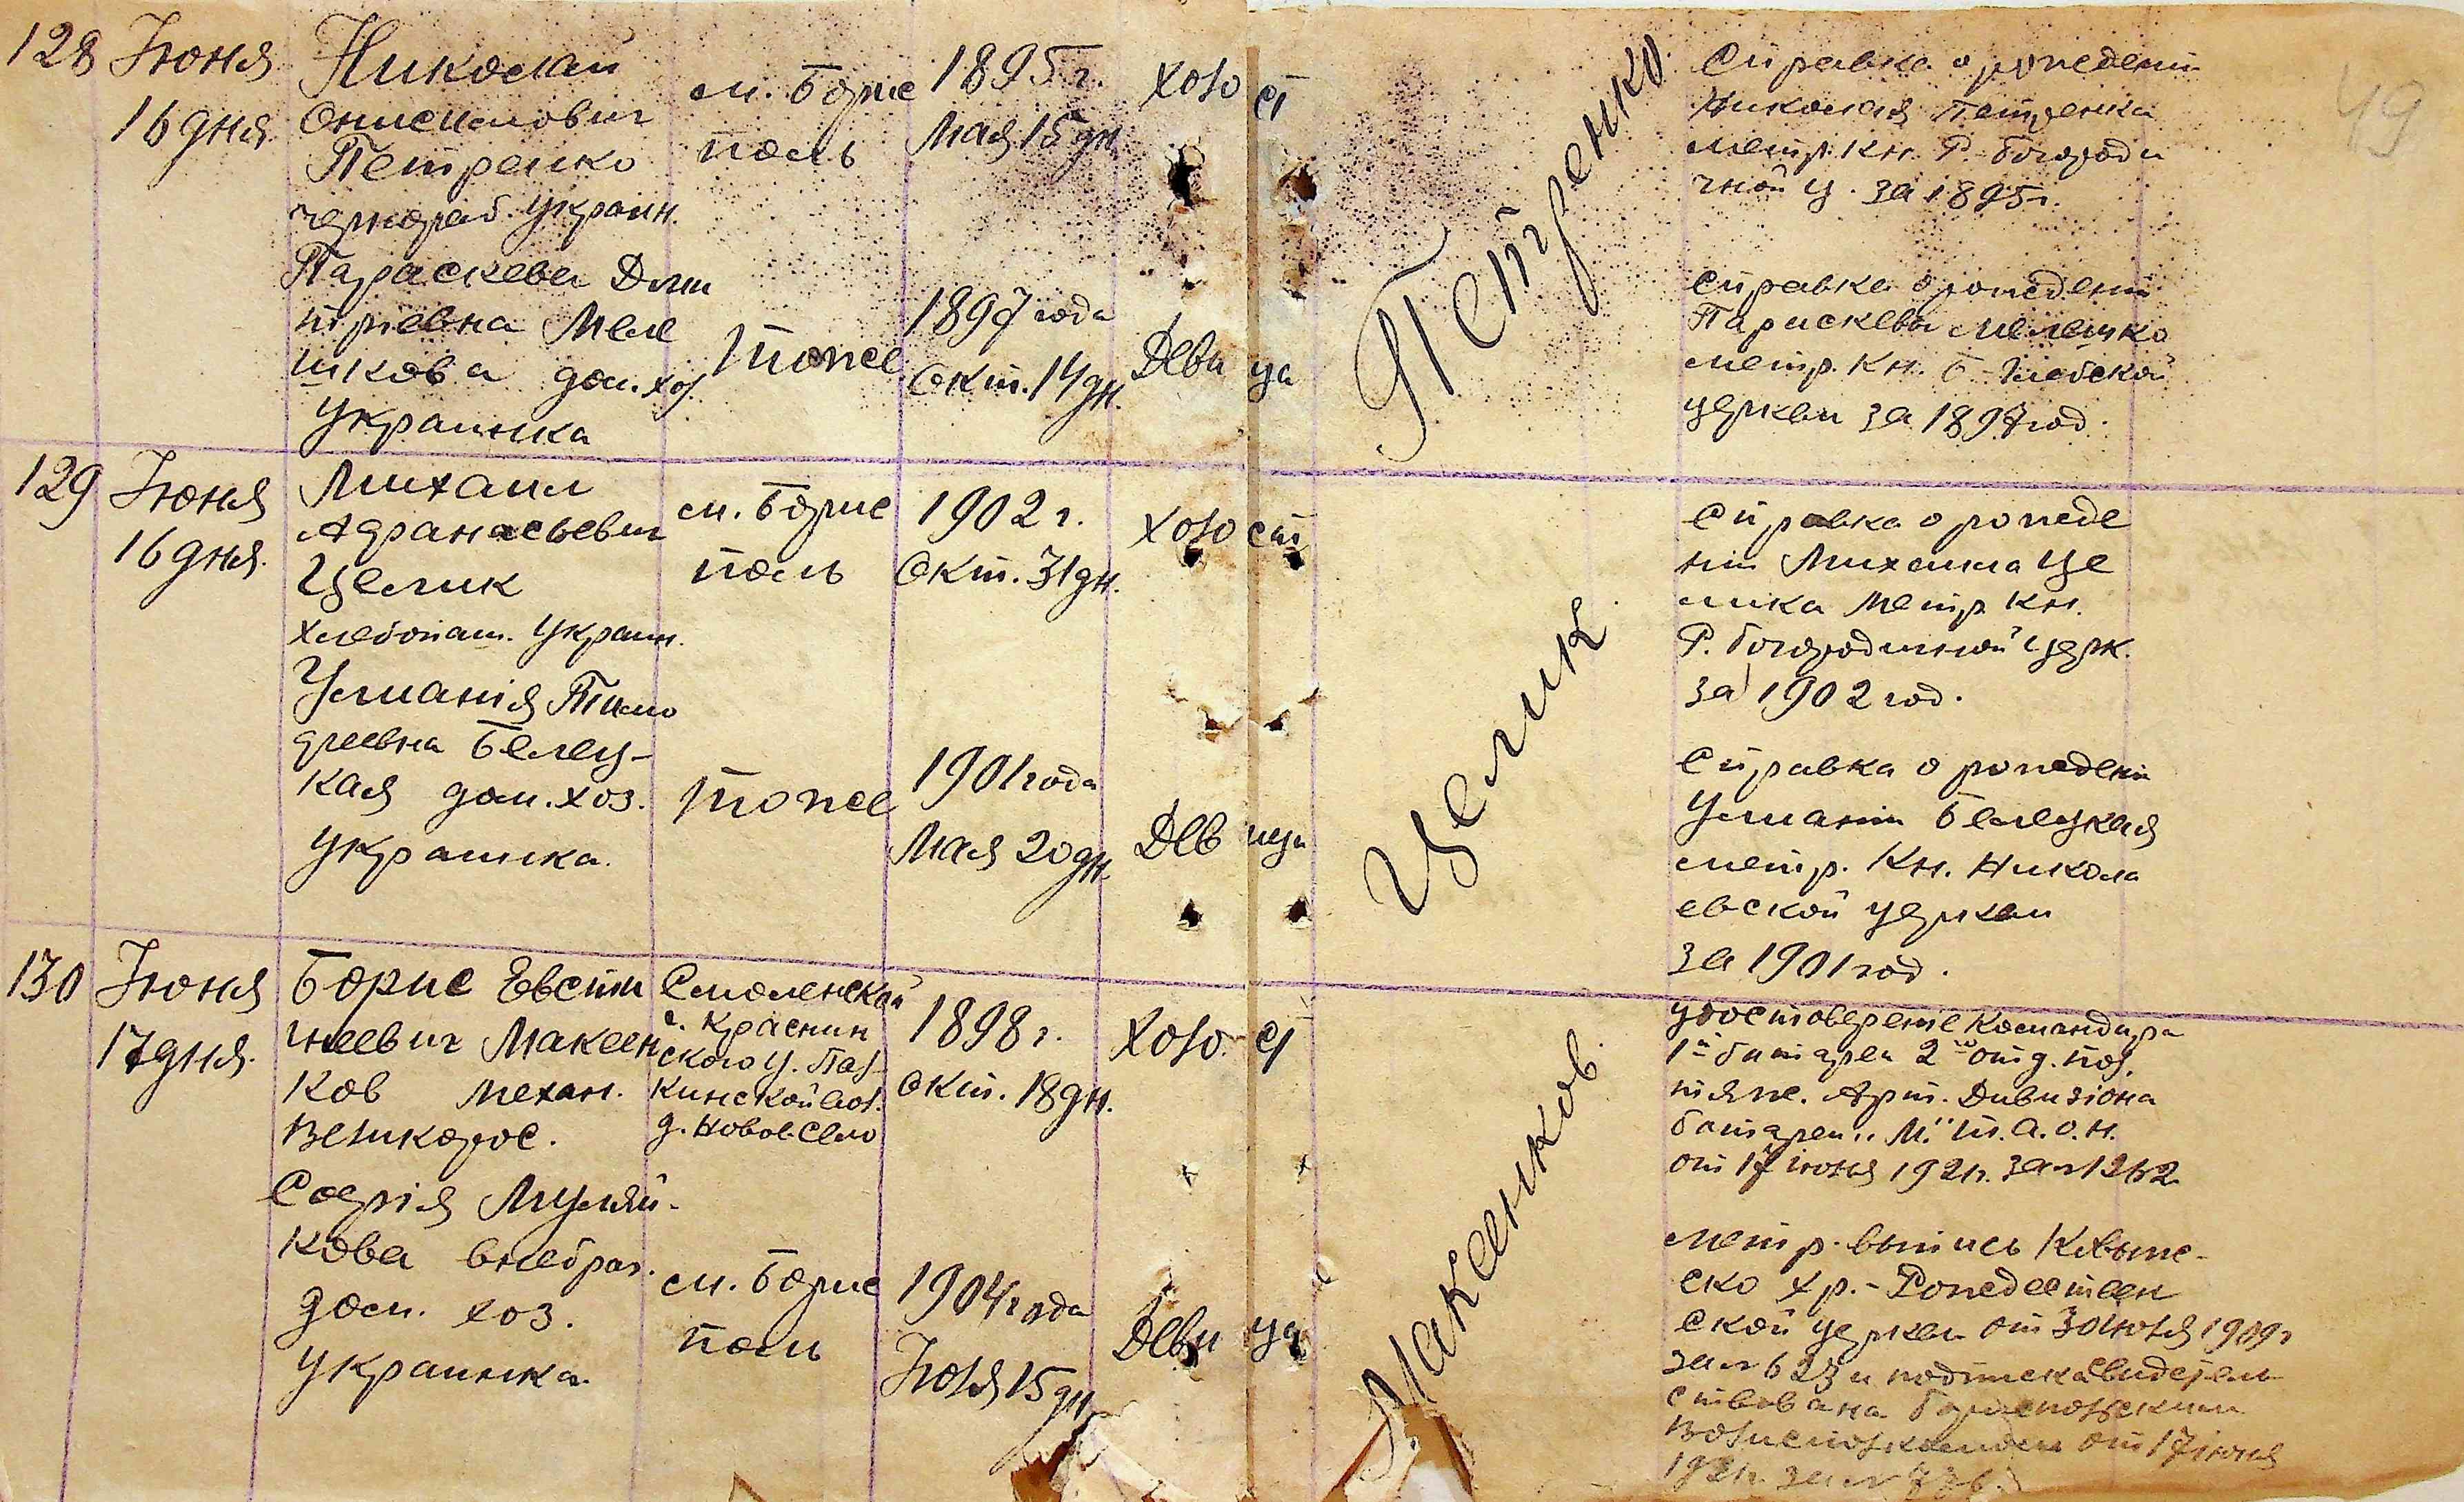 49
128 Июня 16 дня
Николай
Онисимович
Петренко
чернораб. Украин.
м. Борис
поль
1895 г.
Мая 15 дн
холо ст
Петренко
Справка о рождении
Николая Петренка
метр. Кн. Р.-Богороди
чной ц. за 1895 г.
Параскева Дми
триевна Меле
шкова дом. хоз.
Украинка
тоже
1897 года
Окт. 14 дн.
Деви ца
Справка о рождении
Параскевы Мелешко
метр. Кн. Б-Глебской
церкви за 1897 год.
129 Июня 16 дня.
Михаил
Афанасьевич
Целик
Хлебопаш. Украин.
м. Борис
поль
1902 г.
Окт. 31 дн.
холо ст
Целик.
Справка о рожде
нии Михаила Це
лика Метр. Кн.
Р. Богородичной Церк.
за 1902 год.
Улианія Тимо
феевна Белец-
кая дом. хоз.
Украинка.
тоже
1901 года
Мая 20 дн.
Дев ица
Справка о рождении
Улиании Белецкая
метр. Кн. Никола
евской церкви
за 1901 год.
130 Июня 17 дня.
Борис Евсти
гнеевич Макеен
ков Механ.
Великорос.
Смоленской
г. Краснин
ского у.
кинской вол.
д. Новое Село
1898 г.
Окт. 18 дн.
Холо. ст
Макеенков.
Удостоверение Командира
1й батареи 2го отд. поз.
тяже. Арт. Дивизіона
батареи "М." т. а. о. н.
от 17 июня 1921 г. за № 1262
Софія Муляй-
кова внебрач.
дом. хоз.
Украинка.
м. Борис
поль
1904 года
Июля 15 дн
Деви ца
Метр. выпись
ско Хр.-Рождествен
ской церкви от 30 Июля 1909 г
за № 623 и подписка свидетель
ствована Бориспольским
Волисполкомом от 17 июня
1921 г. за № 736.